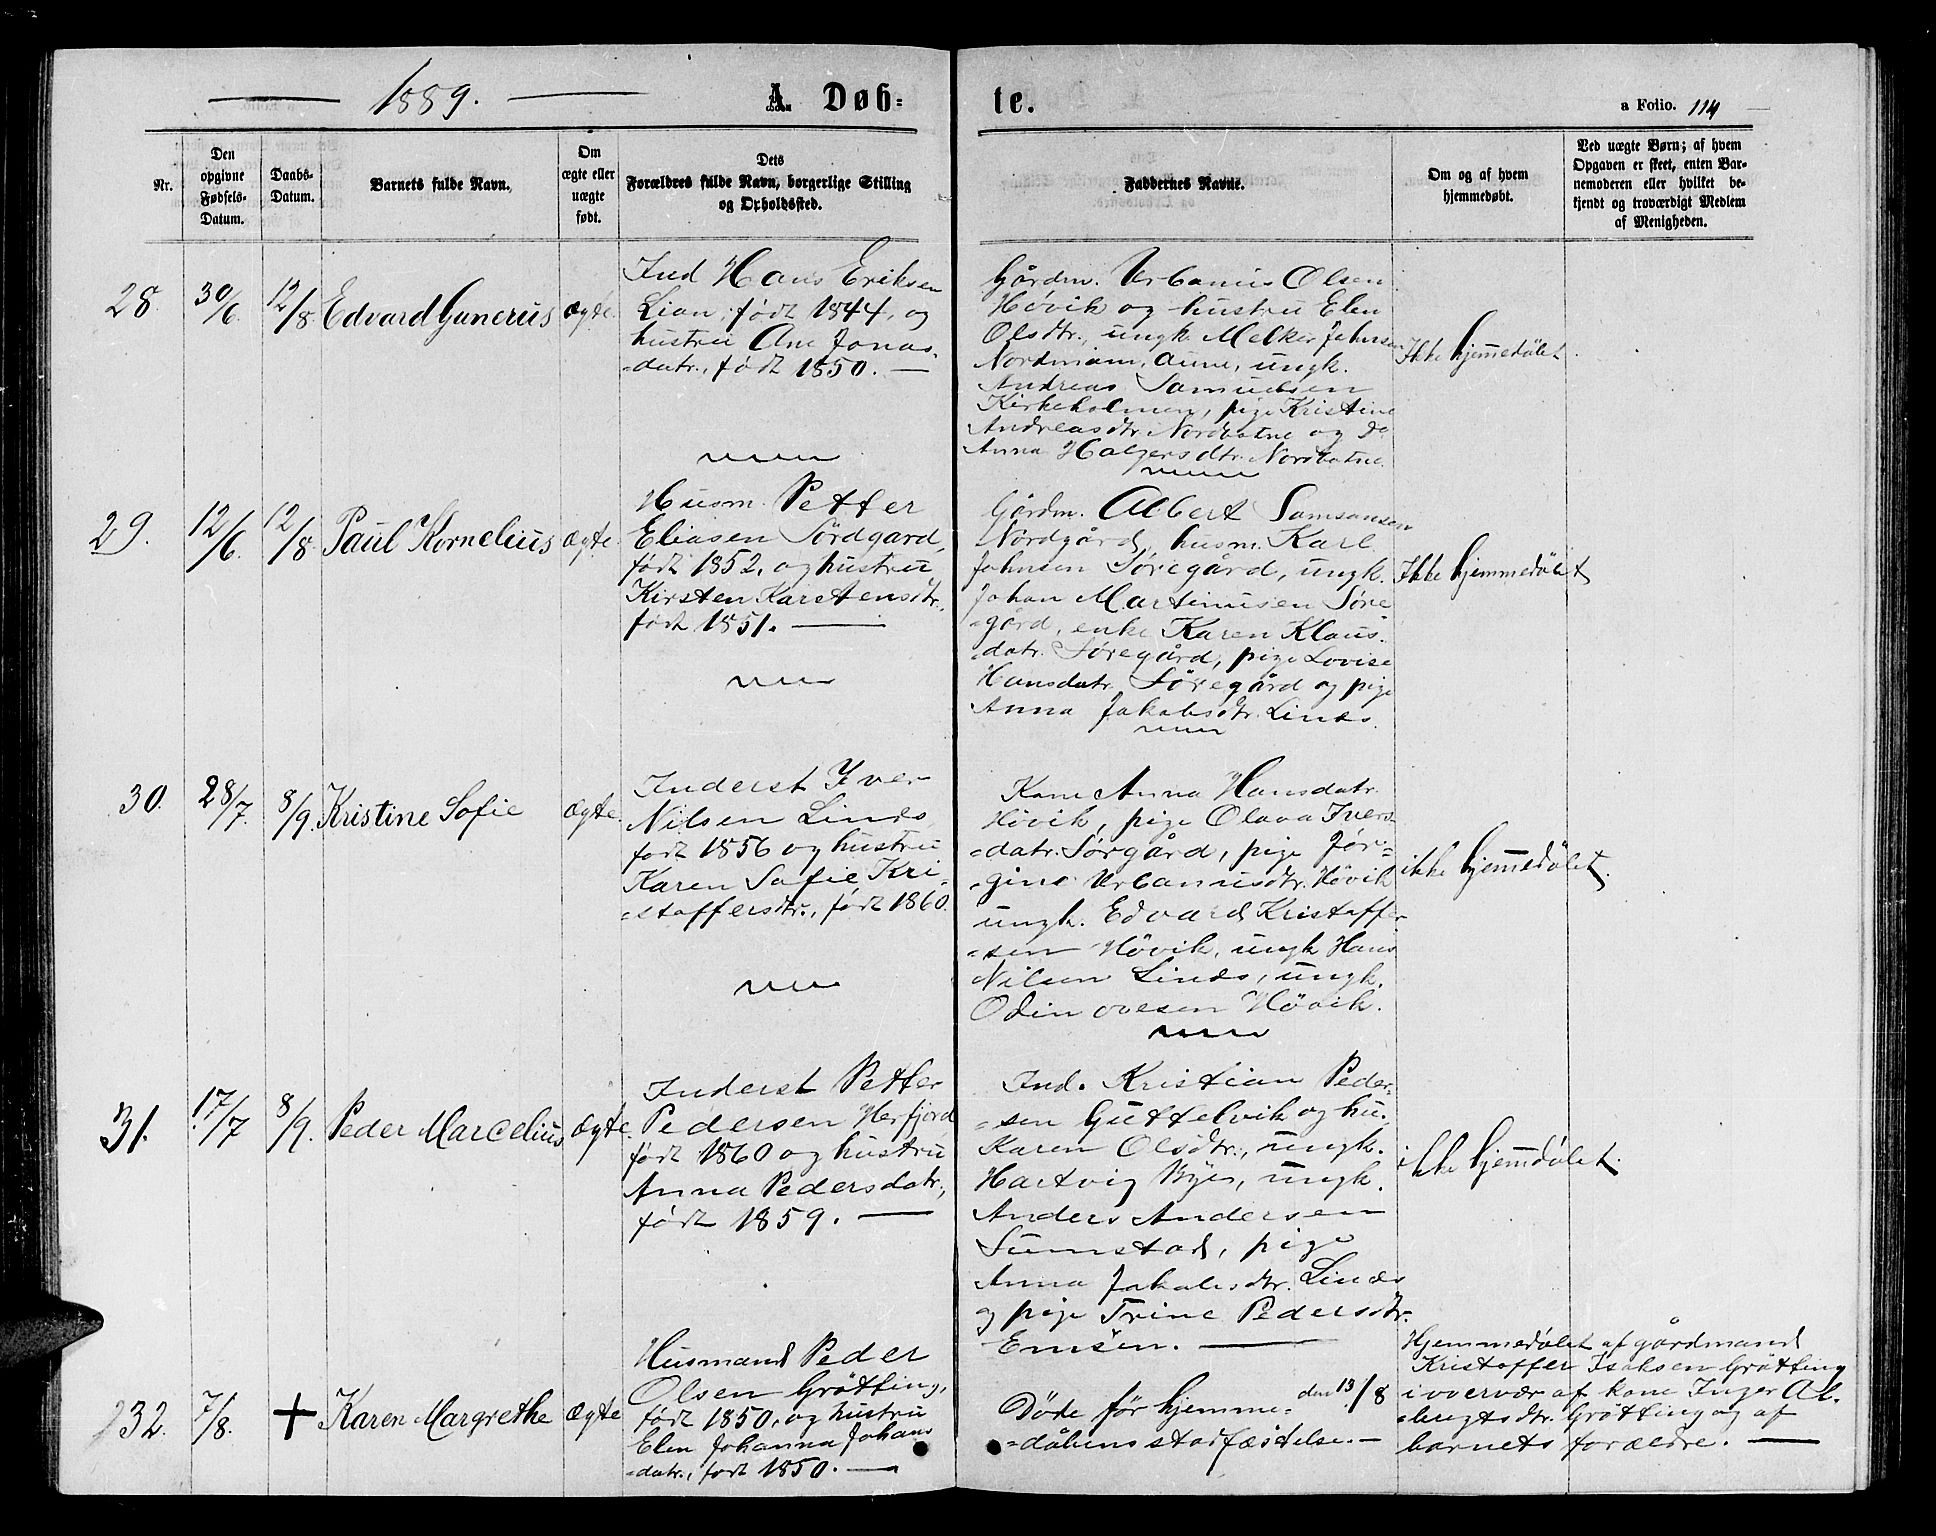 1889.
A. Døb=
te.
a Folio. 114
Nr.
Den
opgivne
Fødsels-
Datum.
Daabs-
Datum.
Barnets fulde Navn.
Om
ægte eller
uægte
født.
Dets
Forældres fulde Navn, borgerlige Stilling
og Opholdssted.
Faddernes Navne.
Om og af hvem
hjemmedøbt.
Ved uægte Børn; af hvem
Opgaven er skeet, enten Bar-
nemoderen eller hvilket be-
kjendt og troværdigt Medlem
af Menigheden.
28.
30/6.
12/8.
Edvard Gunerius
ægte.
Ind Hans Eriksen
Lian, født 1844, og
hustru Ane Jonas-
=datr., født 1850. —
Gårdm. Urbanus Olsen
Høvik og hustru Elen
Olsdtr., ungk. Melker Johnsen
Nordmiam, Aune, ungk.
Andreas Samuelsen
Kirkeholmen, pige Kristine
Andreasdtr. Nordbotne og do
Anna Holgersdtr. Nordbotne.
Ikke hjemmedøbt.
29.
12/6.
12/8.
Paul Kornelius
ægte.
Husm. Petter
Eliasen Sørdgard,
født 1852, og hustru
Kirsten Karstensdtr.
født 1851. —
Gårdm. Albert Samsonsen
Nordgård, husm. Karl
Johnsen Søregård, ungk.
Johan Martinusen Søre
=gård, enke Karen Klaus.
=datr. Søregård, pige Lovise
Hansdatr. Søregård og pige
Anna Jakobsdtr. Linds.
Ikke hjemmedøbt
30.
28/7.
8/9.
Kristine Sofie
ægte.
Inderst Iver
Nilsen Linds,
født 1856 og hustru
Karen Sofie Kri=
=stoffersdtr., født 1860.
Kone Anna Hansdatr.
Høvik, pige Olava Ivers-
=datr. Sørgård, pige Jør=
=gine Urbanusdtr. Høvik
ungk. Edvard Kristoffer
=sen Høvik, ungk Hans
Nilsen Linds, ungk.
Odin ovesen Høvik.
ikke hjemmedøbt.
31.
17/7
8/9.
Peder Marcelius
ægte.
Inderst Petter
Pedersen Herfjord
født 1860 og hustru
Anna Pedersdatr.,
født 1859. —
Ind. Kristian Peder-
=sen Guttelvik og hu.
Karen Olsdtr., ungk.
Hartvig Byes, ungk.
Anders Andersen
Sumstad, pige
Anna Jakobsdtr. Linds
og pige Trine Pedersdtr.
Emsen. —
ikke hjemdøbt.
32.
7/8.
+
Karen Margrethe
ægte
Husmand Peder
Olsen Grøtting,
født 1850, og hustru
Elen Johanna Johans
=datr., født 1850. —
Døde før hjemme= den 13/8
=dåbens stadfæstelse. —
Hjemmedøbt af gårdmand
Kristoffer Isaksen Grøtting
i overvær af kone Inger Al-
=bregtsdtr. Grøtting og af
barnets forældre. —